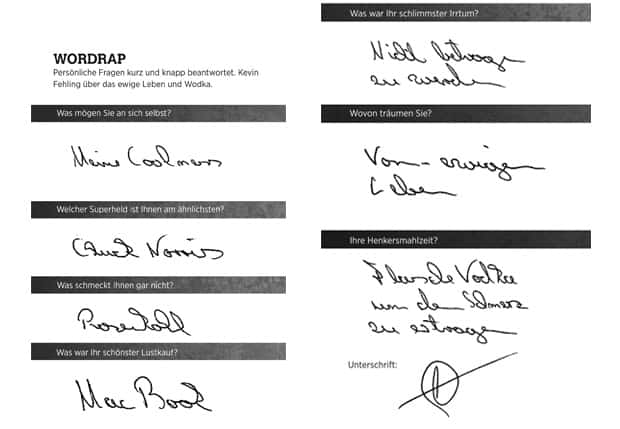 WORDRAP
Persönliche Fragen kurz und knapp beantwortet. Kevin
Fehling über das ewige Leben und Wodka.
Was mögen Sie an sich selbst?
Meine Coolness
Welcher Superheld ist Ihnen am ähnlichsten?
Chuck Norris
Was schmeckt Ihnen gar nicht?
Rosenkohl
Was war Ihr schönster Lustkauf?
Mac Book
Was war Ihr schlimmster Irrtum?
Nicht betrogen
zu werden
Wovon träumen Sie?
Vom ewigen
Leben
Ihre Henkersmahlzeit?
Flasche Vodka
um den Schmerz
zu ertragen
Unterschrift: